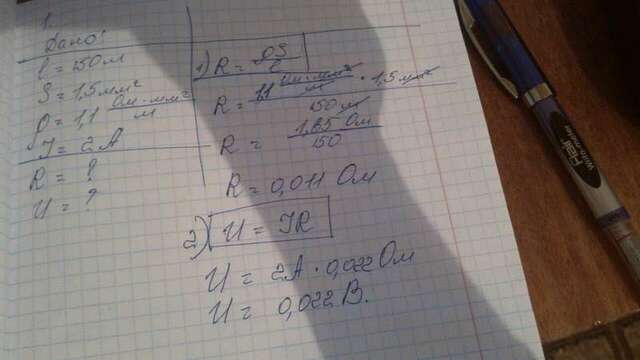 1.
Дано:
l = 150 м
S = 1,5 мм²
ρ = 1,1 Ом·мм²/м
I = 2А
R = ?
U = ?
1) R = ρS/l
R = 1,1 Ом·мм²/м · 1,5 мм² / 150 м
R = 1,65 Ом / 150
R = 0,011 Ом
2) U = IR
U = 2А · 0,022 Ом
U = 0,022 В.
Hair
Write-meter